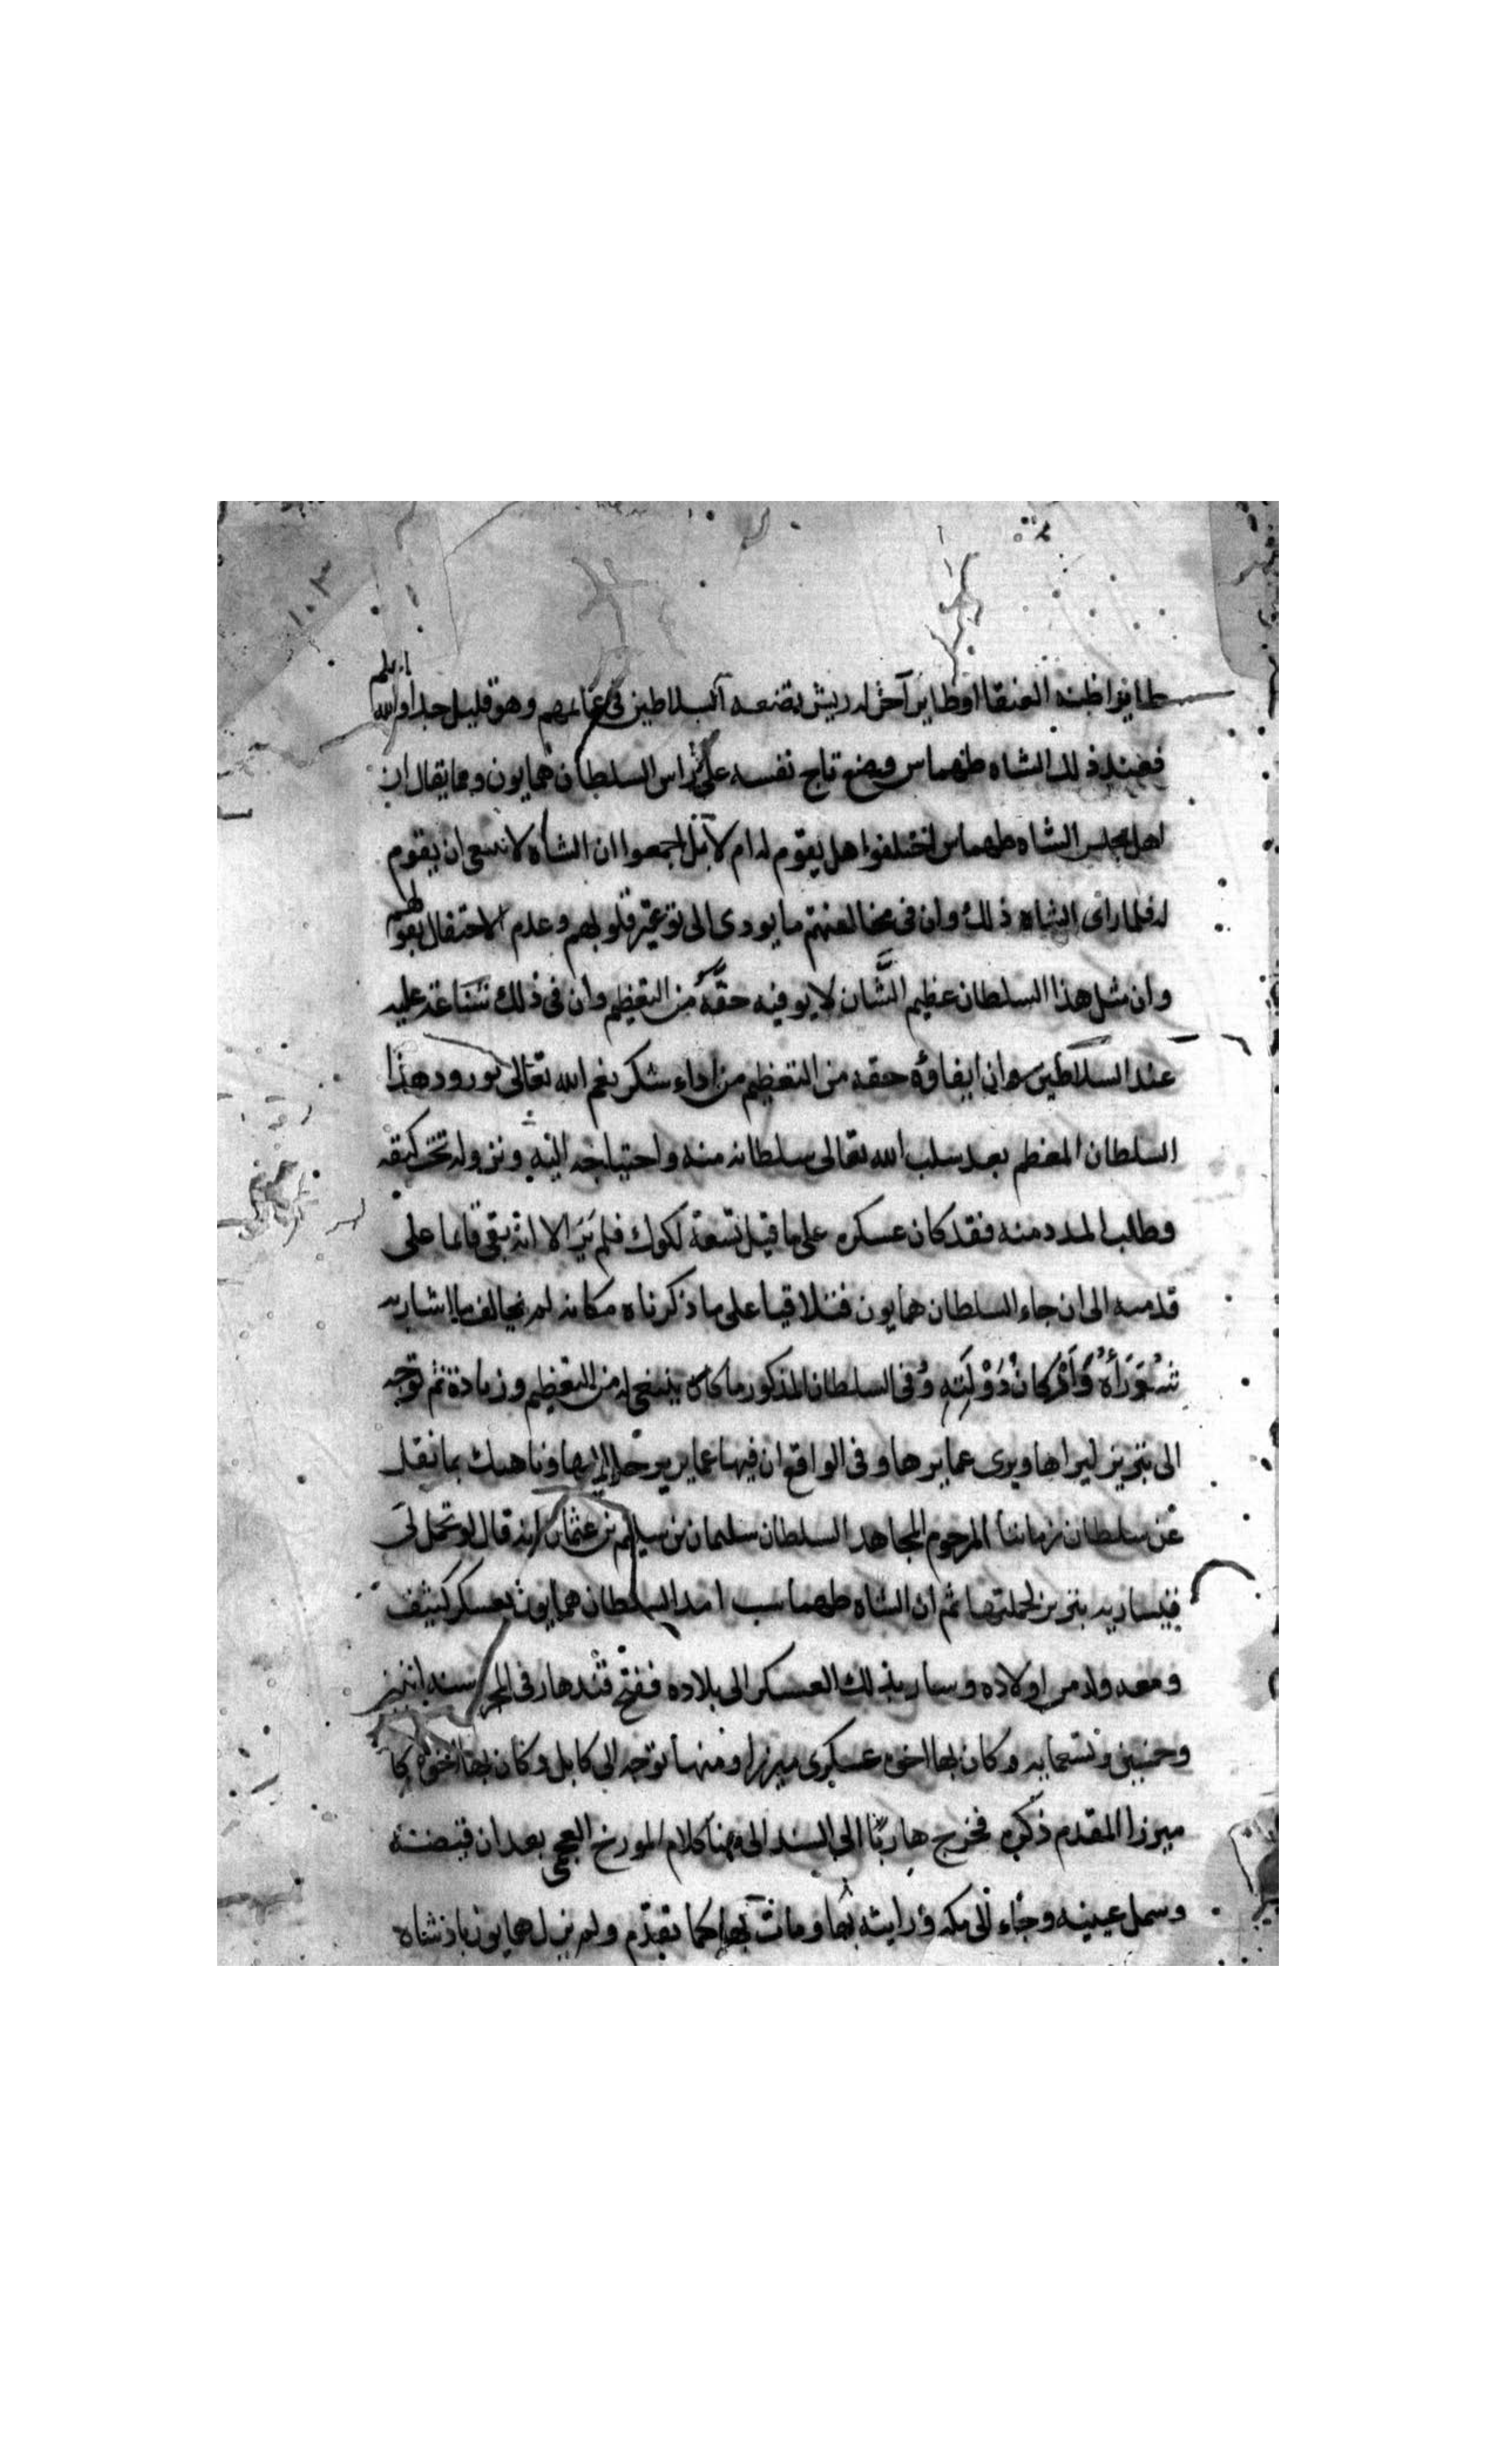 طايفو اظنه العنقا او طاير آخر له ريش تضعه السلاطين في عمايمهم وهو قليل جدا والله اعلم
فعند ذلك الشاه طهماس وضع تاج نفسه على راس السلطان همايون ومما يقال ان
اهل مجلس الشاه طهماس اختلفوا هل يقوم له ام لا بل اجمعوا ان الشاه لا ينبغي ان يقوم
له فلما راى الشاه ذلك وان في مخالفتهم ما يودى الى توغير قلوبهم وعدم الاحتفال بقولهم
وان مثل هذا السلطان عظيم الشَّان لا يوفيه حقَّهُ من التعظيم وان في ذلك شناعة عليه
عند السلاطين وان ايفاؤه حقه من التعظيم من اداء شكر نعم الله تعالى بورود هذا
السلطان المعظم بعد سلب الله تعالى سلطانه منه واحتياجه اليه ونزوله تحت كنفه
وطلب المدد منه فقد كان عسكره على ما قيل تسعة لكوك فلم يَرَ الا انه بقى قايما على
قدميه الى ان جاء السلطان همايون فتلاقيا على ما ذكرناه مكانه لم يخالف ما اشار به
وُزَرَآءهُ وَاَرْكانُ دَوْلَتِهِ وفى السلطان المذكور ما كان ينبغى له من التعظيم وزيادة ثم توجه
الى تبريز ليراها ويرى عمايرها وفى الواقع ان فيها عماير يرحل اليها وناهيك بما نقل
عن سلطان زماننا المرحوم المجاهد السلطان سليمان بن سليم بن عثمان انه قال لو تحمل لى
قيسارية تبريز لحملتها ثم ان الشاه طهماسب امد السلطان همايون بعسكر كثيف
ومعه ولد من اولاده وسار بذلك العسكر الى بلاده ففتح قندهار فى سنه اثنين
وخمسين وتسعمايه وكان بها اخوه عسكرى ميرزا ومنها توجه الى كابل وكان بها اخوه كا
ميرزا المقدم ذكره فخرج هاربًا الى السند الى هنا كلام المورخ العجمى بعد ان قبضه
وسمل عينيه وجاء الى مكه ورايته بها ومات بها كما تقدّم ولم يزل همايون بادشاه